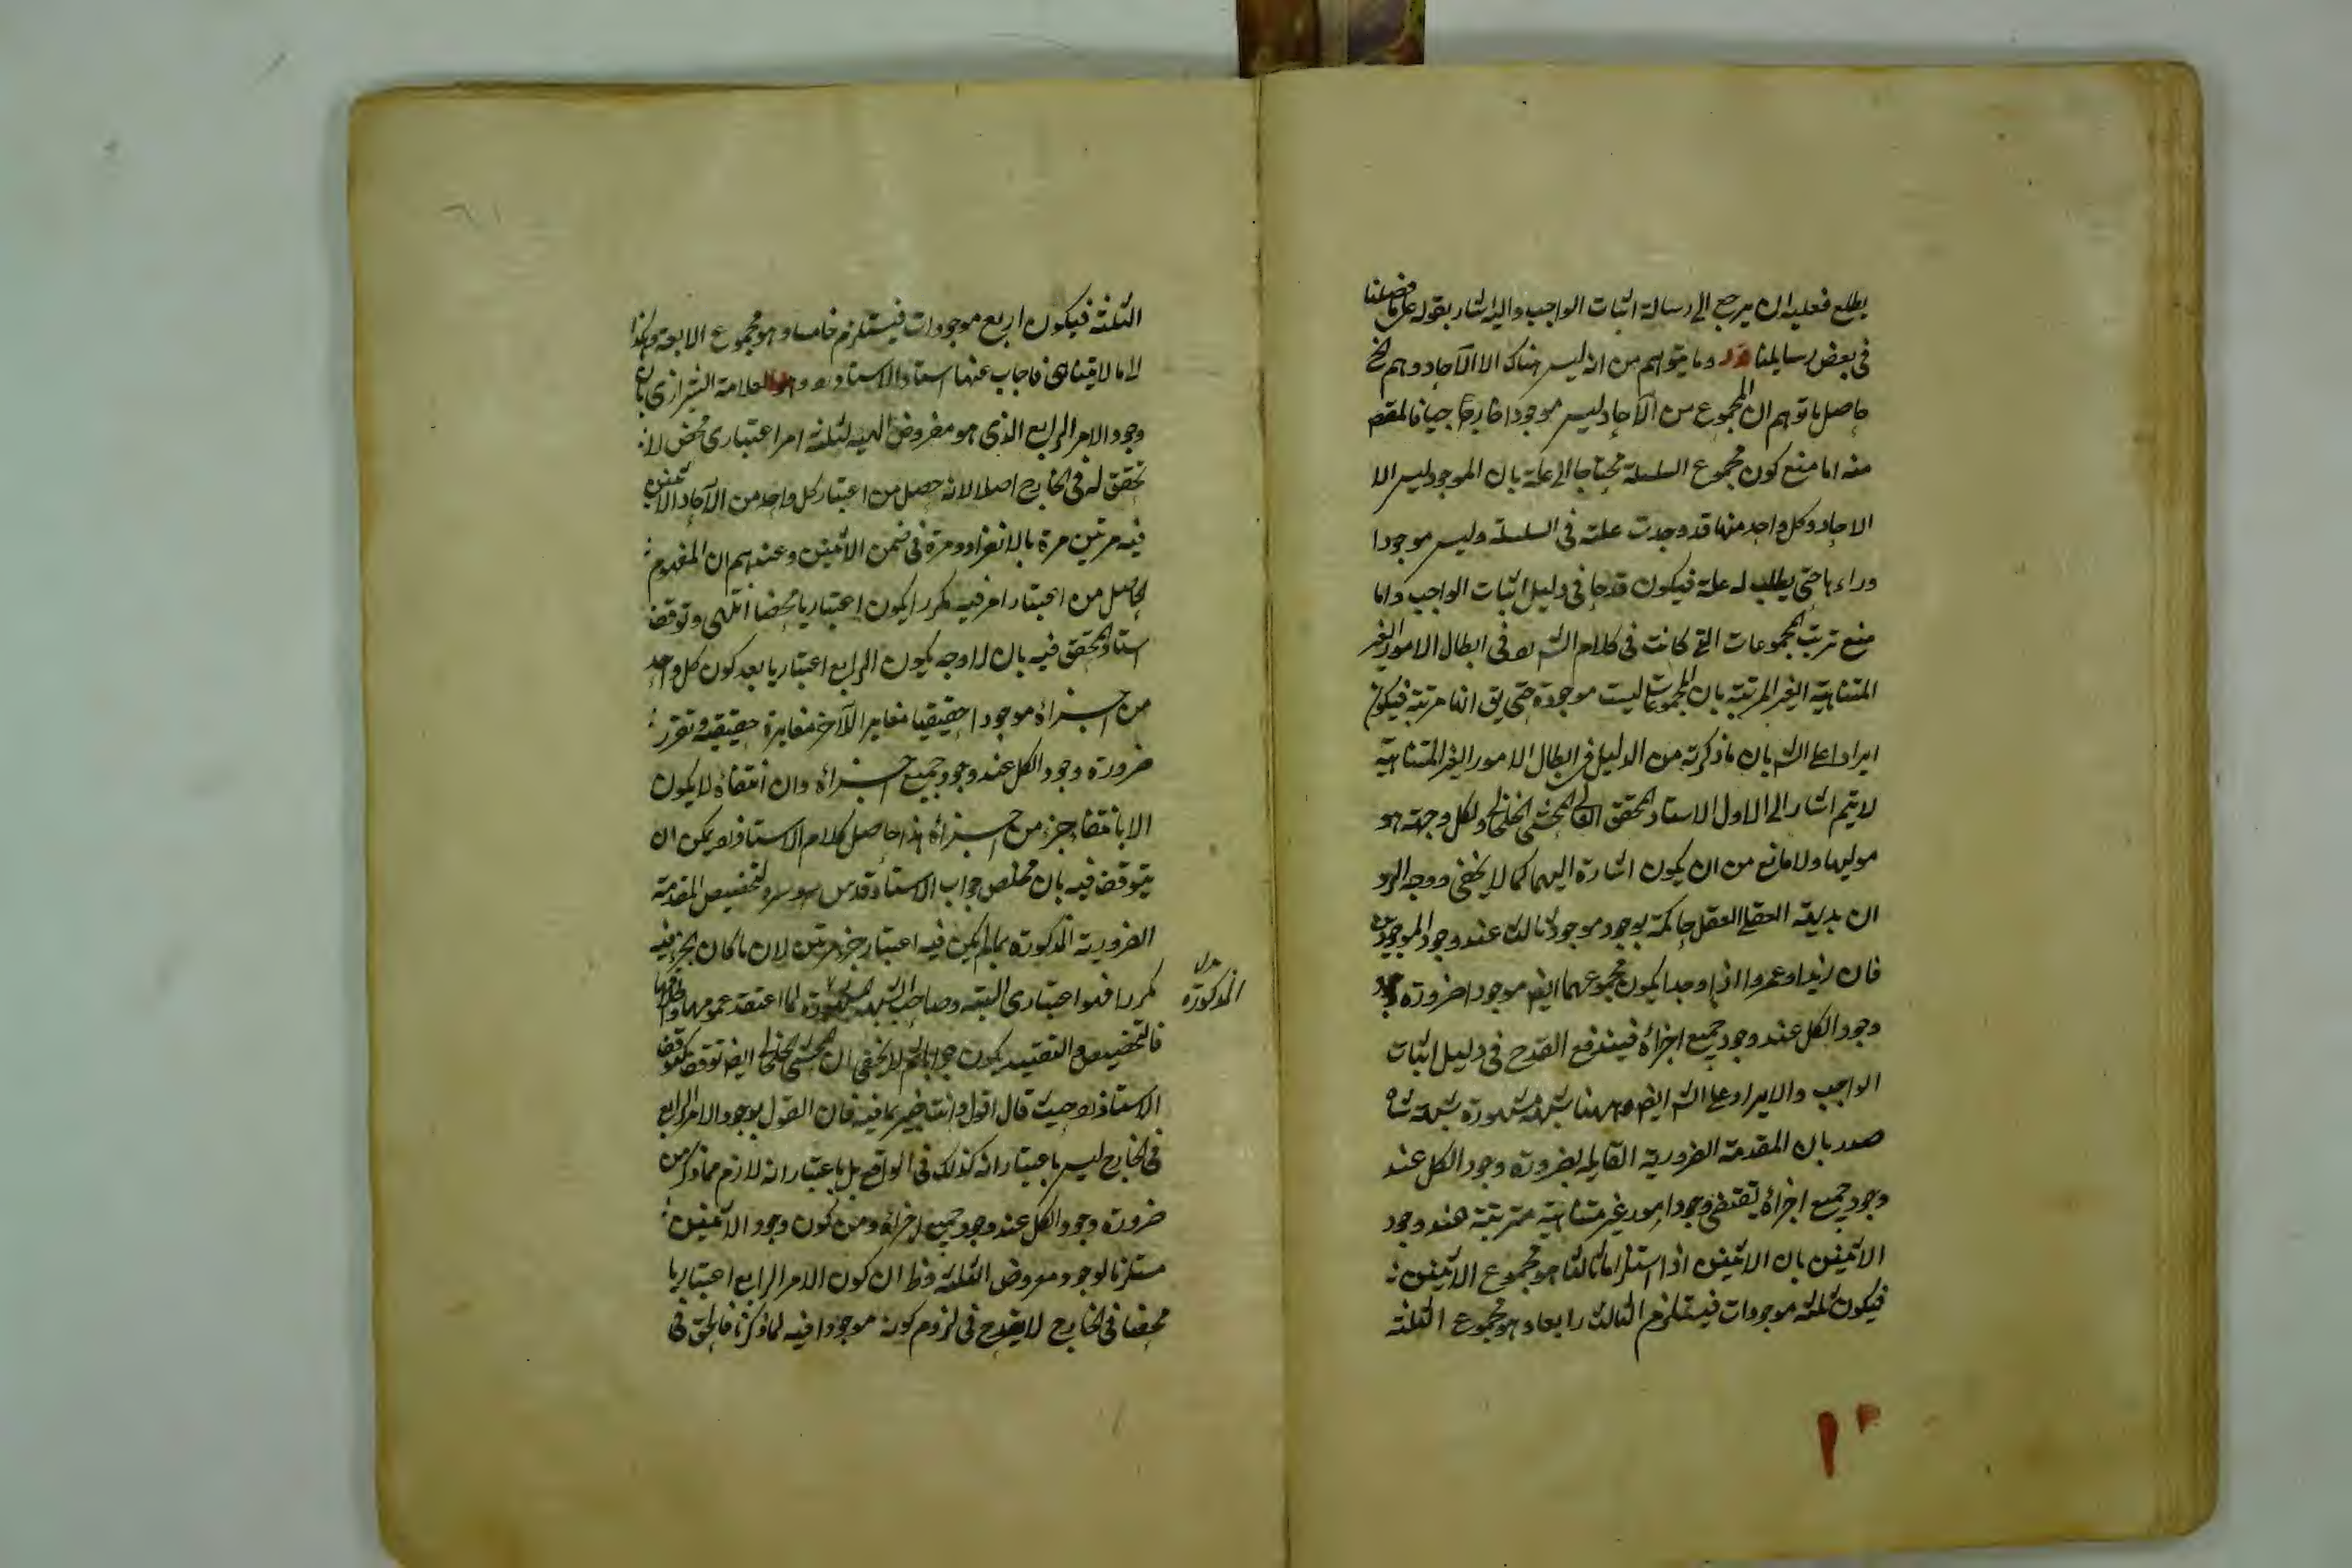 يطلع فعليه ان يرجع الى رسالة اثبات الواجب واليه اشار بقوله على ما فصلنا
فى بعض رسايلنا قوله وما يتوهم من انه ليس هناك الا الآحاد وهم الخ
حاصل ما توهم ان المجموع من الآحاد ليس موجودا خارجيا فالمقصد
منه اما منع كون مجموع السلسلة محتاجا الى علة بان الموجود ليس الا
الاحاد وكل واحد منها قد وجدت علته فى السلسلة وليس موجودا
وراءها حتى يطلب له علة فيكون قدحا فى دليل اثبات الواجب واما
منع ترتب المجموعات التى كانت فى كلام الش فى ابطال الامور الغير
المتناهية الغير المرتبة بان المجموعات ليست موجودة حتى يق انها مرتبة فيكون
ايرادا على الش بان ما ذكرته من الدليل فى ابطال الامور الغير المتناهية
لا يتم اشار الى الاول الاستاد المحقق المحشى الخلخالى ولكل وجهة هو
موليها ولا مانع من ان يكون اشارة اليهما كما لا يخفى ووجه الرد
ان بديهة العقل حاكمة بوجود موجود ثالث عند وجود الموجودين
فان زيدا وعمروا اذا وجدا يكون مجموعهما ايض موجودا ضرورة
وجود الكل عند وجود جميع اجزائه فيندفع القدح فى دليل اثبات
الواجب والايراد على الش ايض وههنا شبهة مشهورة
صدر بان المقدمة الضرورية القايلة بضرورة وجود الكل عند
وجود جميع اجزائه يقتضى وجود امور غير متناهية مترتبة عند وجود
الاثنين بان الاثنين اذا استلزاما ثالثا هو مجموع الاثنين
فيكون ثلثة موجودات فيستلزم الثالث رابعا وهو مجموع الثلثة
الثلثة فيكون اربع موجودات فيستلزم خامسا وهو مجموع الاربعة وهكذا
الى ما لا يتناهى فاجاب عنها استاد الاستاد وهو العلامة الشيرازى بان
وجود الامر الرابع الذى هو معروض الهيئة لثلثة امر اعتبارى محض لا
تحقق له فى الخارج اصلا لانه حصل من اعتبار كل واحد من الآحاد الاثنين
فيه مرتين مرة بالانفراد ومرة فى ضمن الاثنين وعندهم ان المفهوم
الحاصل من اعتبار امر فيه مكررا يكون اعتباريا محضا انتهى وتوقف
استاد المحقق فيه بان لا وجه يكون الرابع اعتباريا بعد كون كل واحد
من اجزائه موجودا حقيقيا مغايرا للآخر مغايرة حقيقية وتقرر
ضرورة وجود الكل عند وجود جميع اجزائه وان انتفائه لا يكون
الا بانتفاء جزء من اجزائه هذا حاصل كلام الاستاد يمكن ان
يتوقف فيه بان ملخص جواب الاستاد قدس سره تخصيص المقدمة
الضرورية المذكورة بما لم يكن فيه اعتبار جزء مرتين لان ما كان الجزء فيه
مكررا فهو اعتبارى البتة وصاحب الشبهة المذكورة لما اعتقد عمومها
فالتخصيص والتقييد يكون جوابا ثم لا يخفى ان المحشى الخلخالى ايض توقف كتوقف
الاستاد حيث قال اقول وانت خبير بما فيه فان القول بوجود الامر الرابع
فى الخارج ليس باعتبار انه كذلك فى الواقع بل باعتبار انه لازم مما ذكر من
ضرورة وجود الكل عند وجود جميع اجزائه ومن كون وجود الاثنين
مستلزما لوجود معروض الثلثة وظ ان كون الامر الرابع اعتباريا
محضا فى الخارج لا يقدح فى لزوم كونه موجودا فيه لما ذكرنا فالحق فى
المذكورة